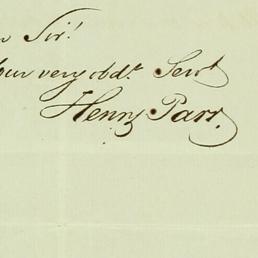 Sir!
Your very obdt. Servt
Henry Parr.